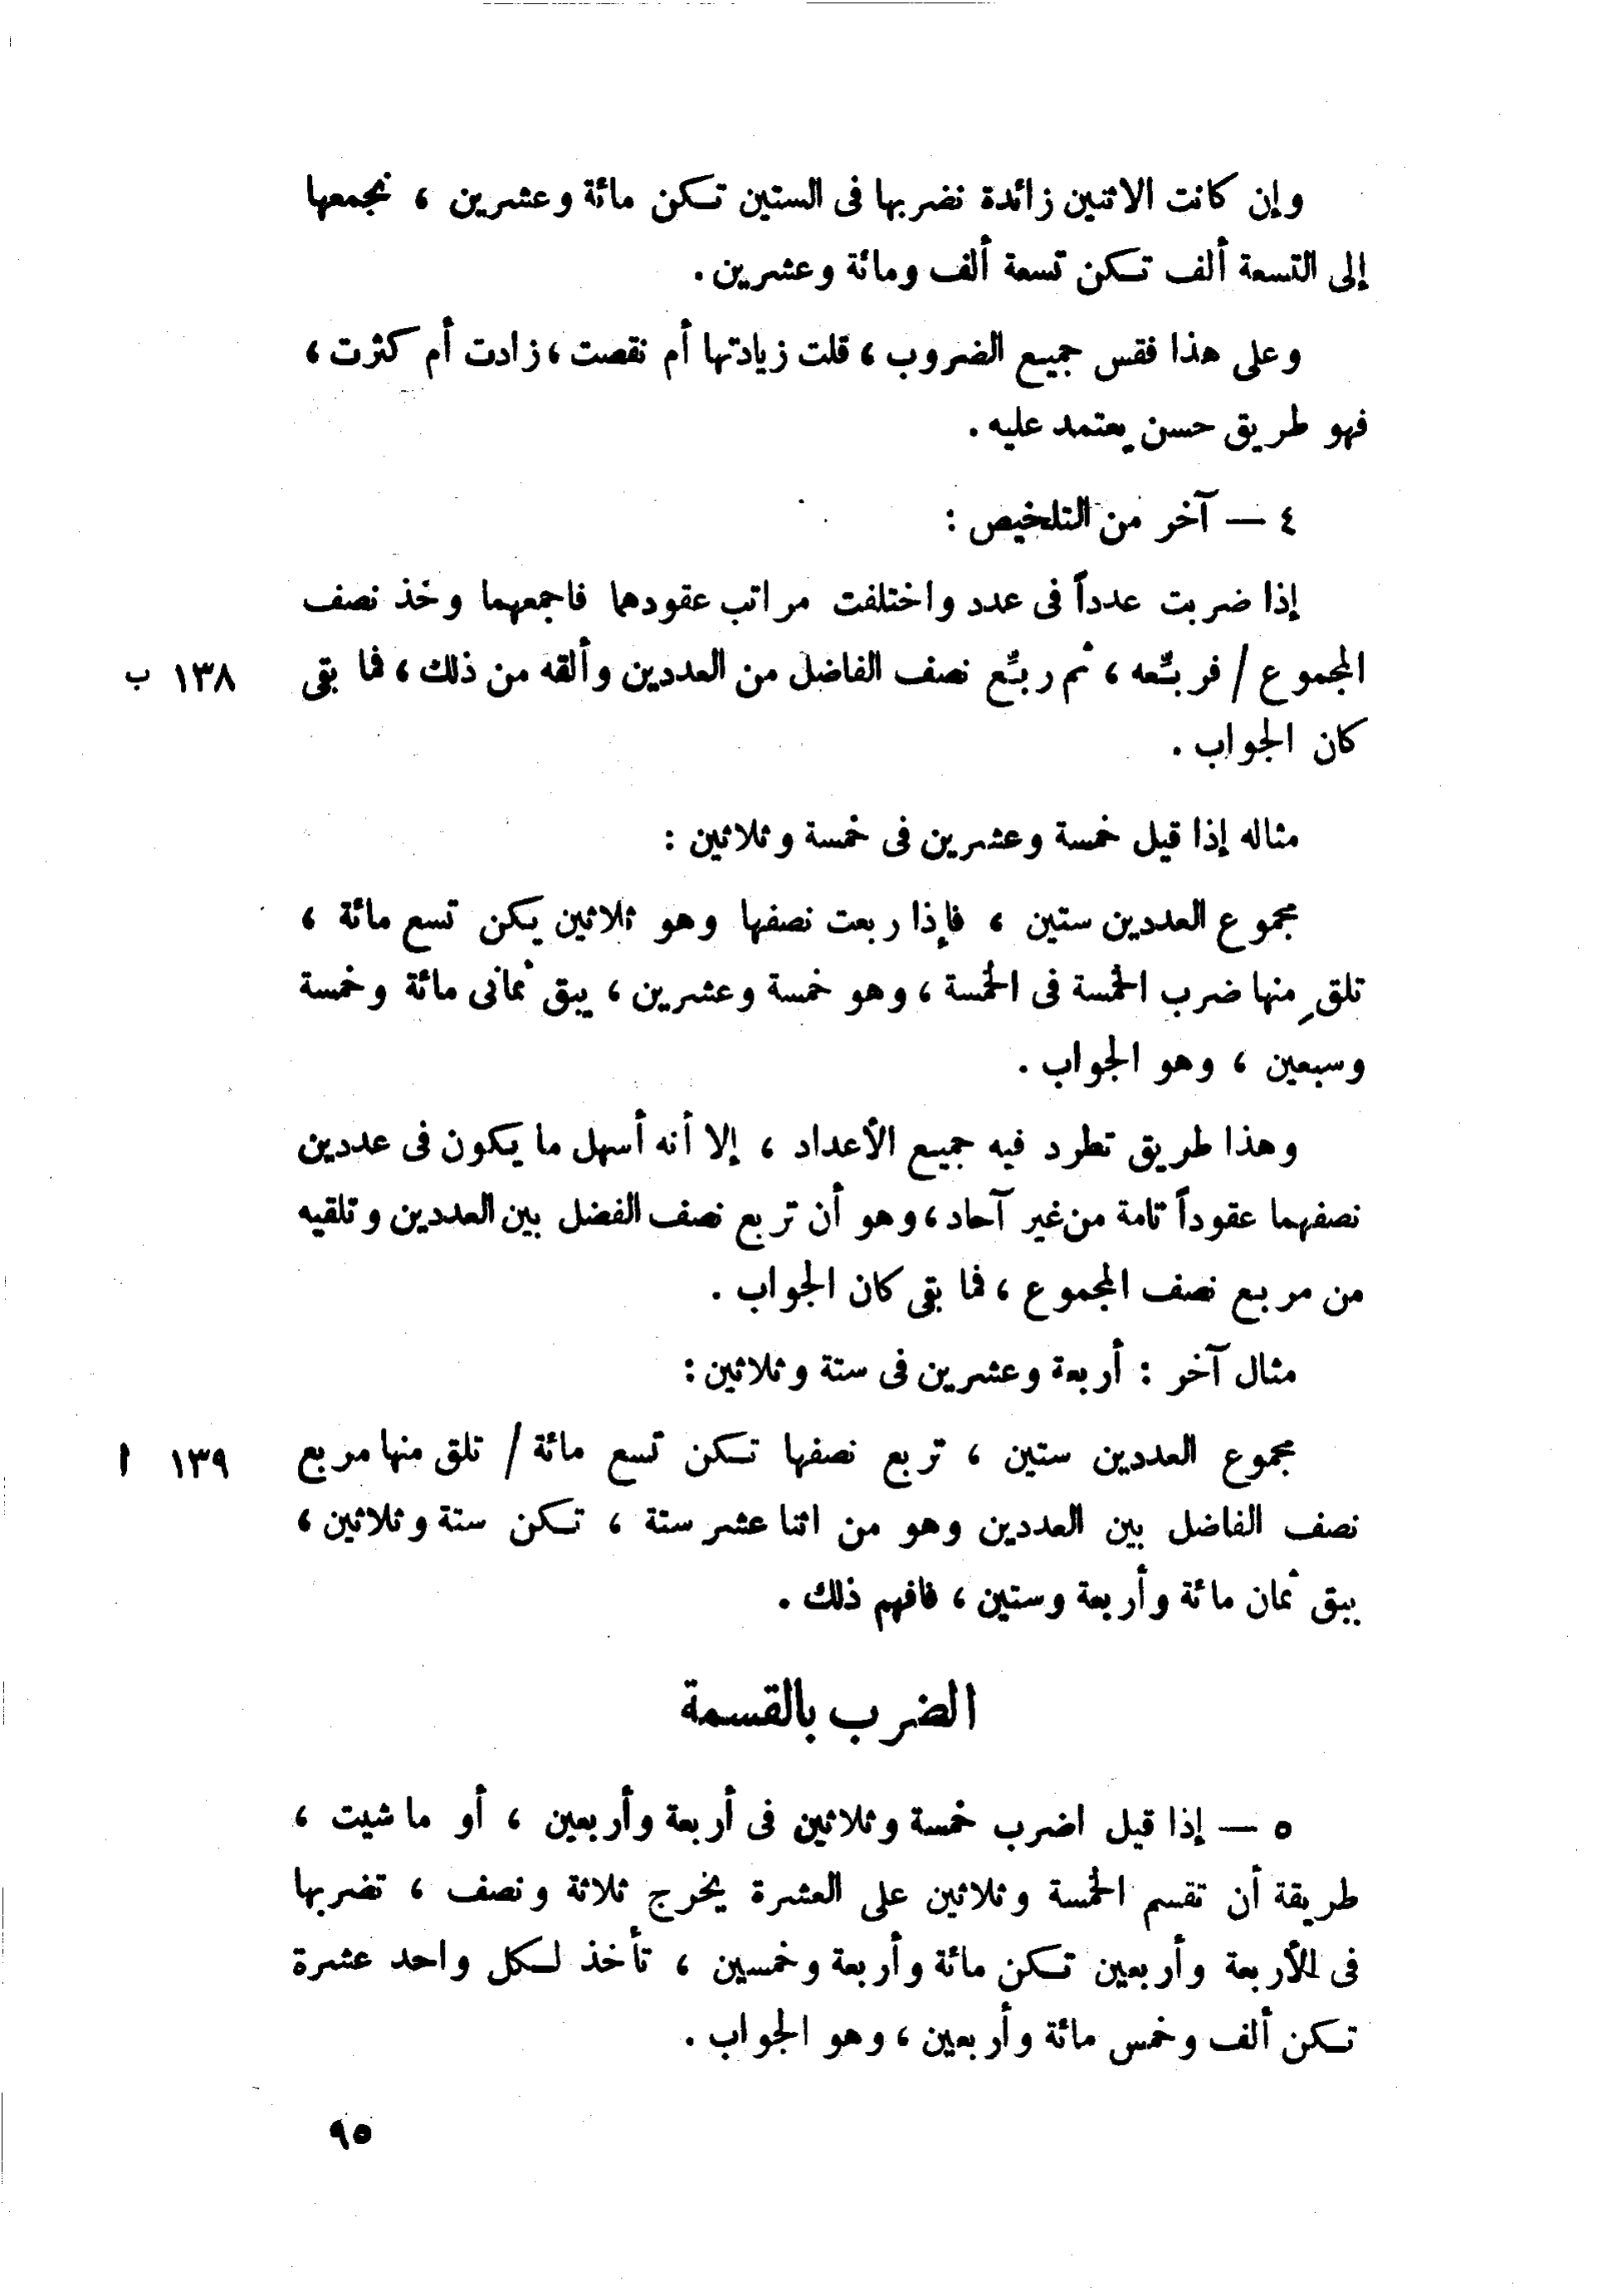 وإن كانت الاثنين زائدة نضربها فى الستين تكن مائة وعشرين ، نجمعها
إلى التسعة ألف تكن تسعة ألف ومائة وعشرين .
وعلى هذا فقس جميع الضروب ، قلت زيادتها أم نقصت ، زادت أم كثرت ،
فهو طريق حسن يعتمد عليه .
٤ — آخر من التلخيص :
إذا ضربت عدداً فى عدد واختلفت مراتب عقودهما فاجمعهما وخذ نصف
المجموع / فربّعه ، ثم ربّع نصف الفاضل من العددين وألقه من ذلك ، فما بقى ١٣٨ ب
كان الجواب .
مثاله إذا قيل خمسة وعشرين فى خمسة وثلاثين :
مجموع العددين ستين ، فإذا ربعت نصفها وهو ثلاثين يكن تسع مائة ،
تلقِ منها ضرب الخمسة فى الخمسة ، وهو خمسة وعشرين ، يبق ثمانى مائة وخمسة
وسبعين ، وهو الجواب .
وهذا طريق تطرد فيه جميع الأعداد ، إلا أنه أسهل ما يكون فى عددين
نصفهما عقوداً تامة من غير آحاد ، وهو أن تربع نصف الفضل بين العددين وتلقيه
من مربع نصف المجموع ، فما بقى كان الجواب .
مثال آخر : أربعة وعشرين فى ستة وثلاثين :
مجموع العددين ستين ، تربع نصفها تكن تسع مائة / تلق منها مربع ١٣٩ ا
نصف الفاضل بين العددين وهو من اثنا عشر ستة ، تكن ستة وثلاثين ،
يبق ثمان مائة وأربعة وستين ، فافهم ذلك .
الضرب بالقسمة
٥ — إذا قيل اضرب خمسة وثلاثين فى أربعة وأربعين ، أو ما شيت ،
طريقة أن تقسم الخمسة وثلاثين على العشرة يخرج ثلاثة ونصف ، تضربها
فى الأربعة وأربعين تكن مائة وأربعة وخمسين ، تأخذ لكل واحد عشرة
تكن ألف وخمس مائة وأربعين ، وهو الجواب .
٩٥